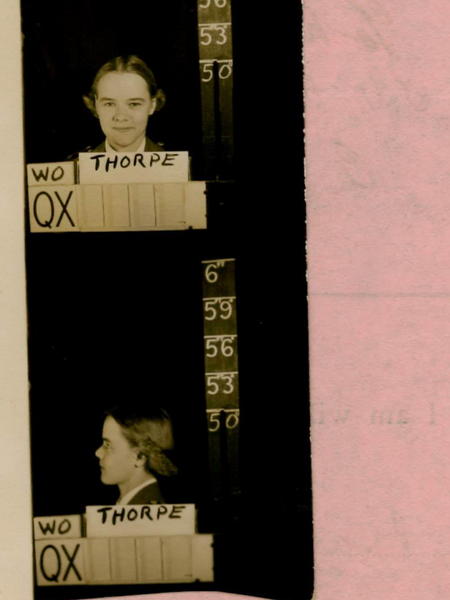 56
53
50
THORPE
WO
QX
6"
59
56
53
50
I am wi
THORPE
WO
QX